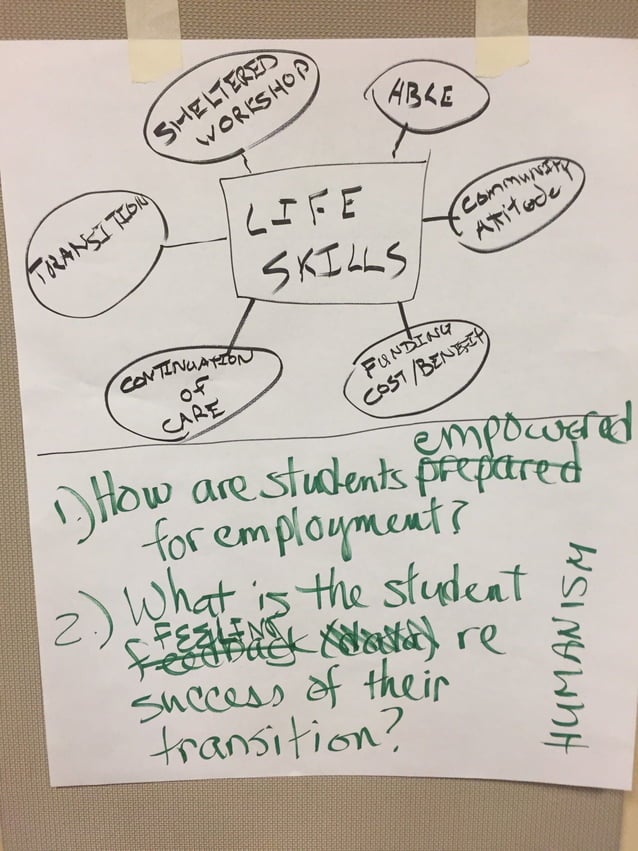 SHELTERED
WORKSHOP
ABLE
TRANSITION
LIFE
SKILLS
COMMUNITY
AttitodE
CONTINUATION
OF
CARE
FUNDING
COST/BENEFIT
empowered
1.) How are students prepared
for employment?
2.) What is the student
FEELING
feedback (data) re
success of their
transition?
HUMANISM